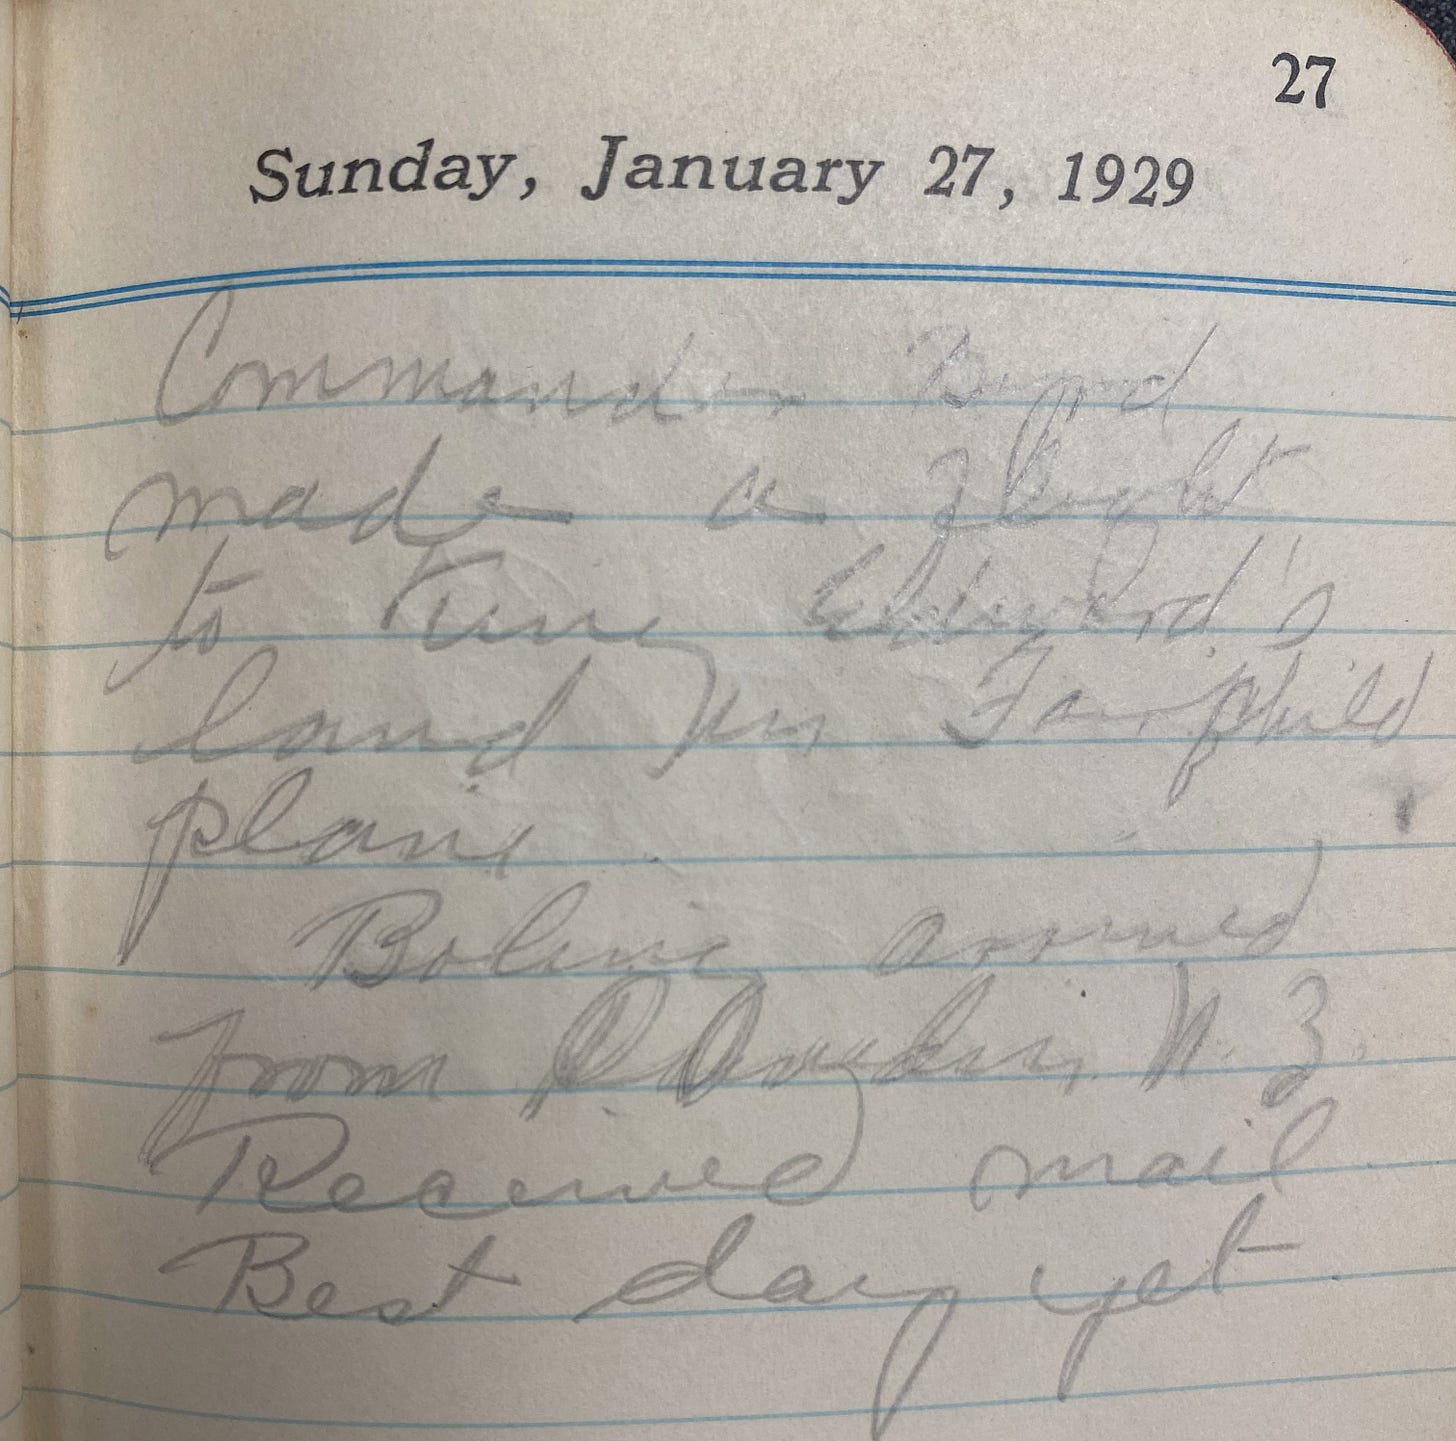 27
Sunday, January 27, 1929
Commander Byrd
made a flight
to King Edward's
land in Fairphild
plane
Boling arrived
from Dunedin, N. Z.
Received mail
Best day yet